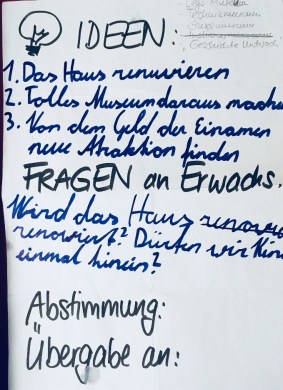 IDEEN:
Museum
1. Das Haus renuvieren
2. Tolles Museum daraus mache
3. Von dem Geld der Einamen
neue Atraktion finden
FRAGEN an Erwachs.
Wird das Haus renowie
renowirt? Dürfen wir Kin
einmal hinein?
Abstimmung:
Übergabe an: